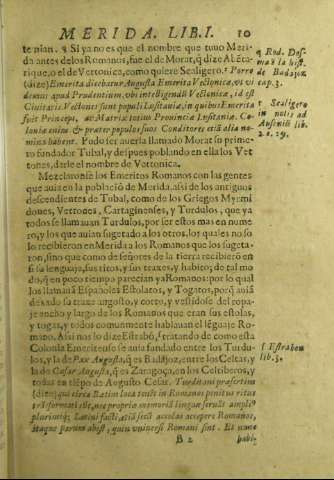 MERIDA. LIB. I. 10
tenian. q Si ya no es que el nombre que tuuo Meri-
da antes de los Romanos, fue el de Morat, q dize Al
rique, o el de Vettonica, como quiere Scaligero. r Porro
(dize) Emerita diceba
demus apud Prudentium, vbi intelligendū Vectonica, id est
Ciuitatis Vectonis sunt populi Lusitaniæ, in quibus Emerita
fuit Princeps, ac totius Prouinciæ Lusitaniæ. Co-
lonia enim & præter populos suos Conditores etiā alia no-
mina habent. Pudo ser auerla llamado Morat su prime-
ro fundador Tubal, y despues poblando en ella los Vet
tones, darle el nombre de Vettonica.
Mezclaronse los Emeritos Romanos con las gentes
que auia en la població de Merida, assi de los antiguos
descendientes de Tubal, como de los Griegos Myrmi
dones, Vettones, Cartaginenses, y Turdulos, que ya
todos se llamauan Turdulos, por ser estos mas en nume
ro, y los que auian sugetado a los otros, los quales no so
lo recibieron en Merida a los Romanos que los sugeta-
ron, sino que como de señores de la tierra recibierō en
si su lenguaje, sus ritos, y sus traxes, y habito; de tal mo
do, q̄ en poco tiempo parecian ya Romanos: por lo qual
los llamauā Españoles Estolatos, y Togatos, porq̄ auiā
dexado su traxe angosto, y corto, y vestidose del ropa-
je ancho y largo de los Romanos que eran sus estolas,
y togas, y todos comunmente hablauan el lēguaje Ro-
mano. Assi nos lo dize Estrabō, s tratando de como esta
Colonia Emeritense se auia fundado entre los Turdu-
los, y la de Pax Augusta, q̄ es Badajoz, entre los Celtas, y
la de Cæsar Augusta, q̄ es Zaragoça, en los Celtiberos, y
todas en tiēpo de Augusto Cesar. Turditani præsertim
(dize) qui circa Bætim loca tenēt in Romanos penitus ritus
trāsformati esse, nec propriæ memoriā linguæ seruāt ampli9
plurimiq; Latini facti, etiā secū accolas accepere Romanos,
itaque parum abest, quin vniuersi Romani sint. Et nunc
B 2 
q Rod. Dos-
ma la hist.
de Badajoz
cap. 3.
r Scaligero
in notis ad
Ausoniū lib.
2. c. 29.
s Estrabon
lib. 3.